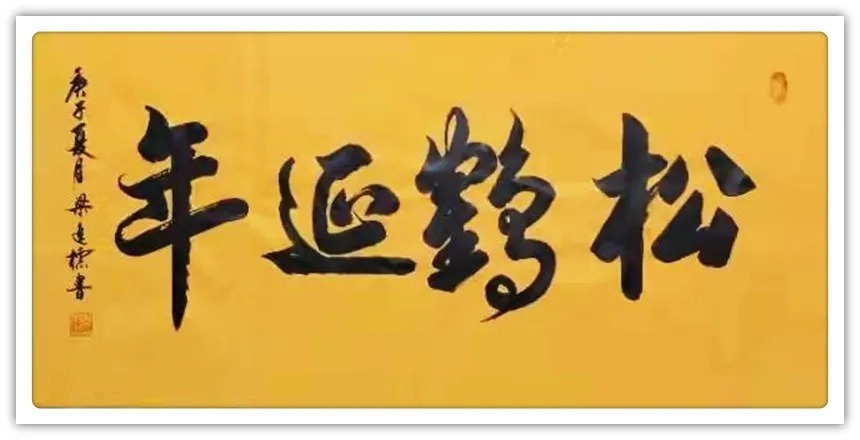 松鹤延年
庚子夏月梁进标书